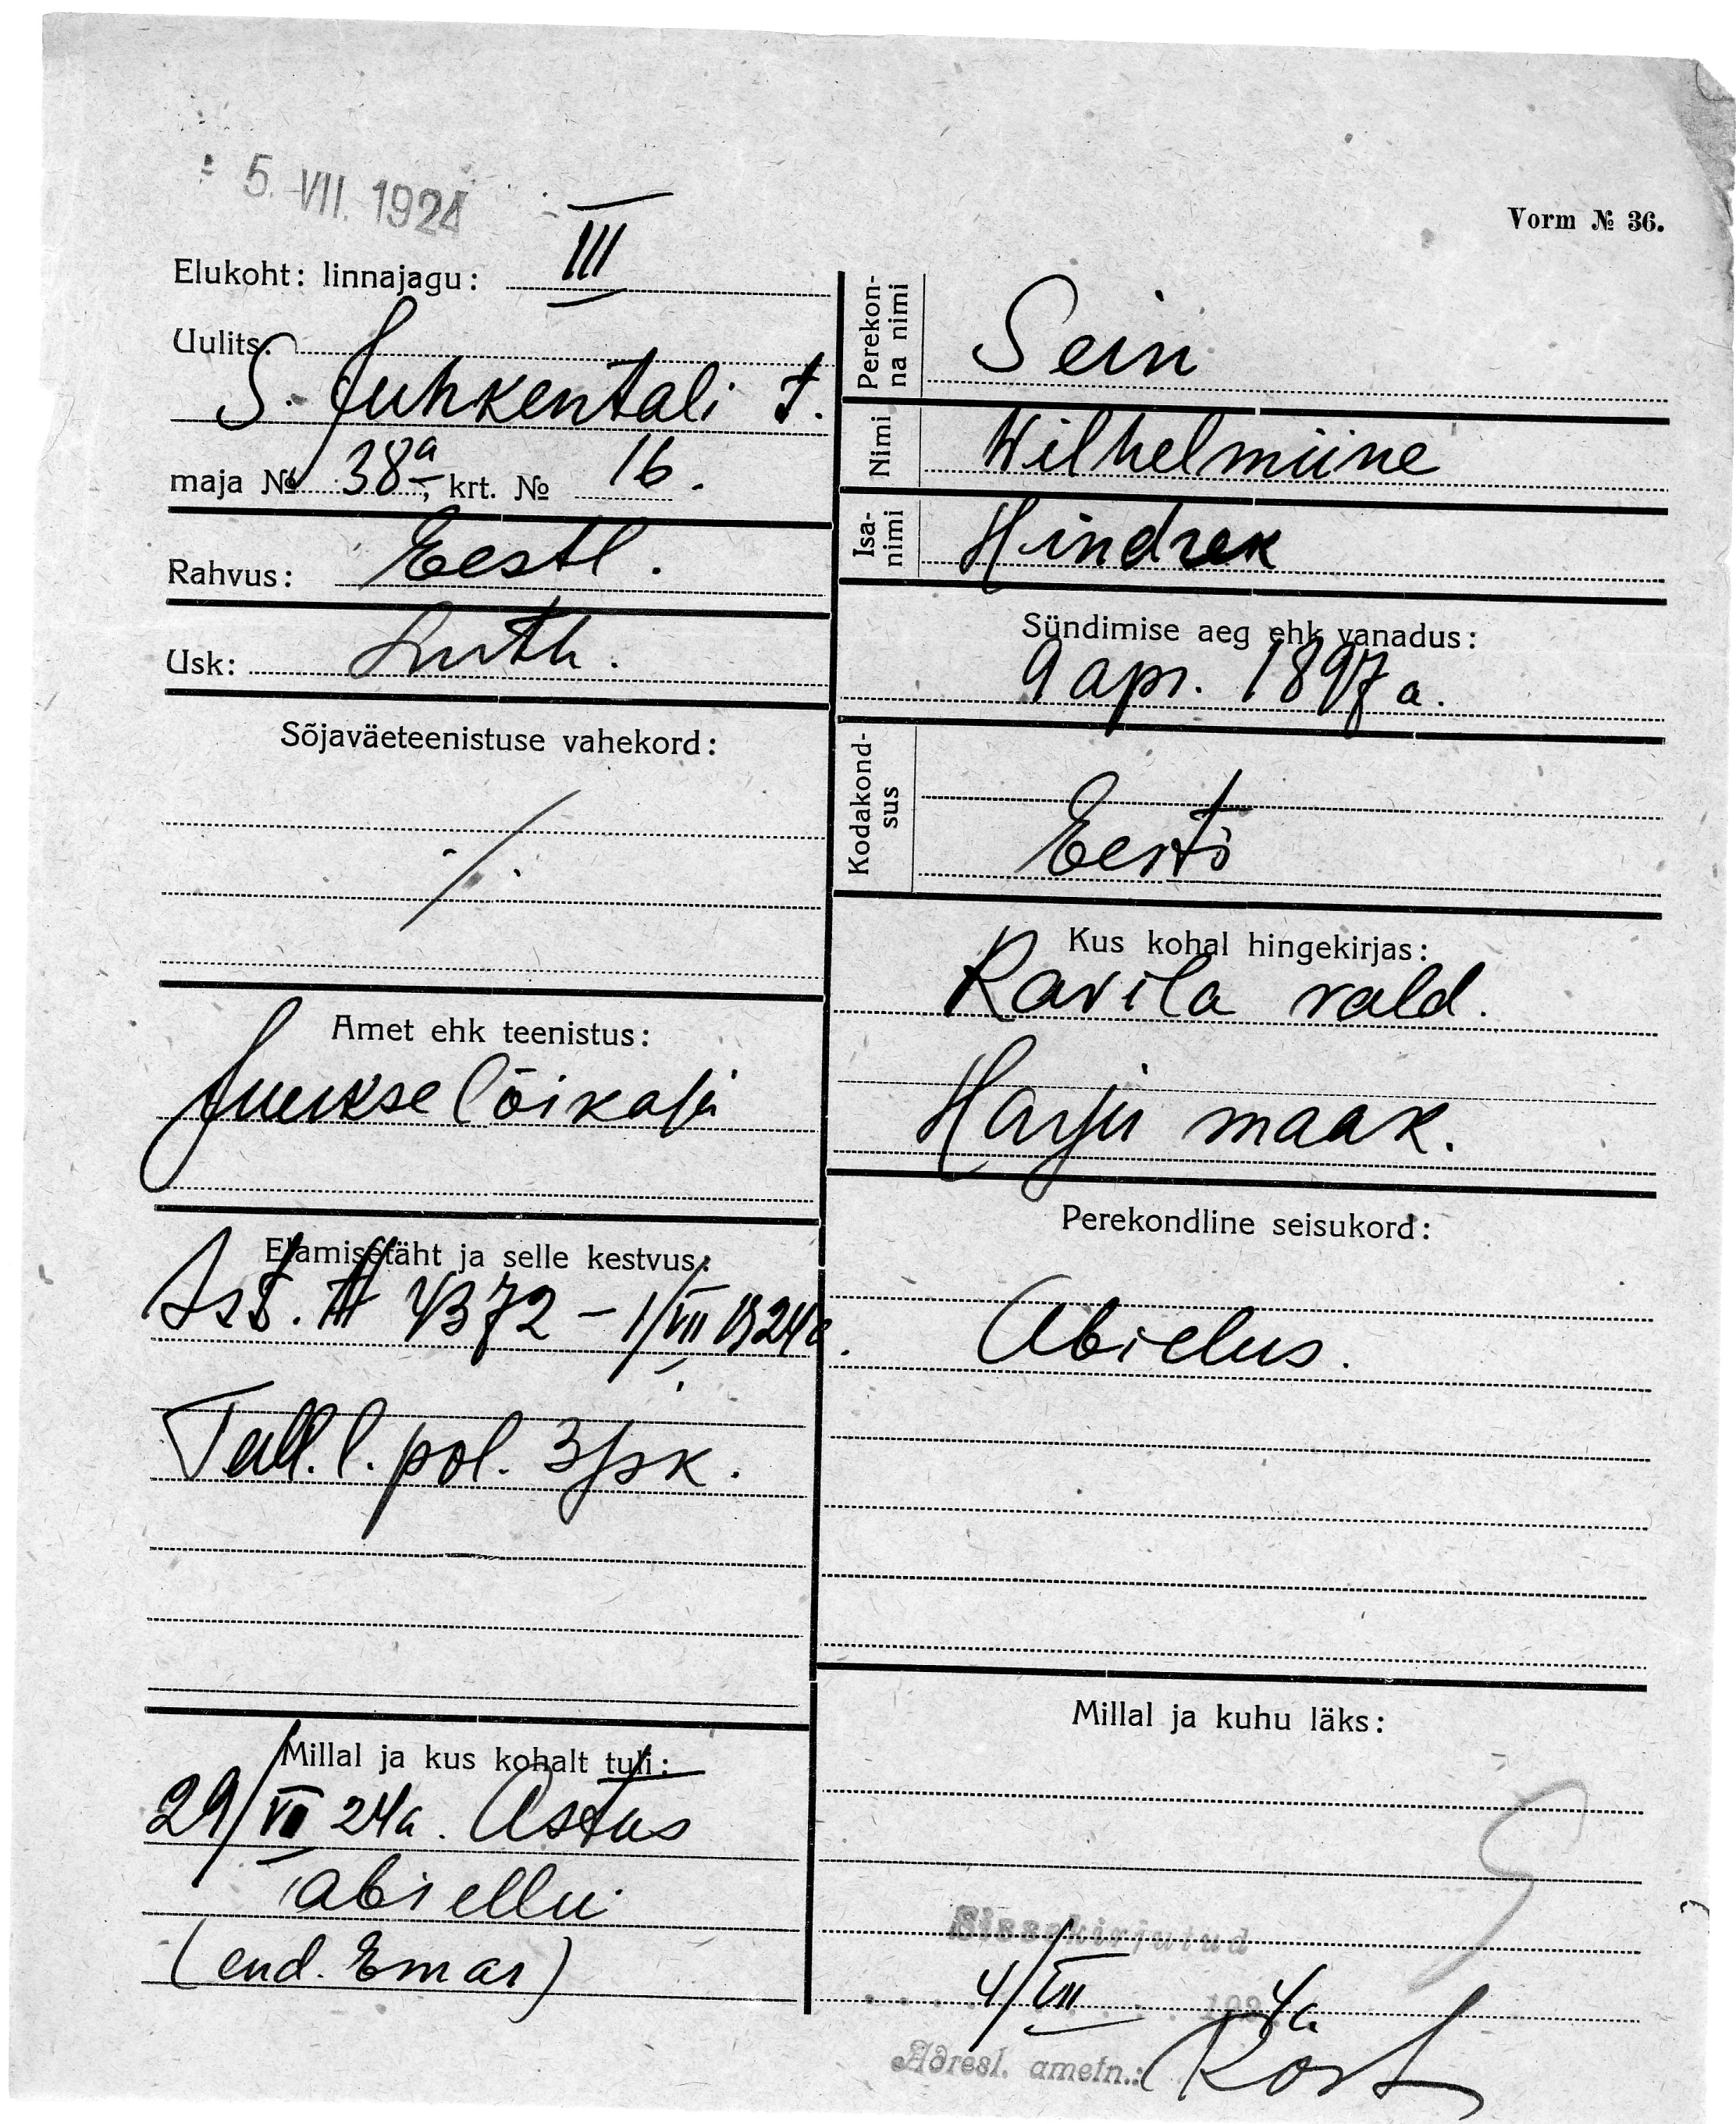 5. VII. 1924
Vorm № 36.
Elukoht: linnajagu: III
Uulits:
S. Juhkentali t.
maja № 38a, krt. № 16.
Rahvus: Eestl.
Usk: Luth.
Sõjaväeteenistuse vahekord:
Amet ehk teenistus:
Juukselõikaja
Elamisetäht ja selle kestvus:
4372 – 1/VII 1924a.
Tall. l. pol. 3 jsk.
Millal ja kus kohalt tuli:
29/VI 24a. Astus
abiellu
(end. Emar)
Perekonna nimi Sein
Nimi Wilhelmiine
Isanimi Hindrek
Sündimise aeg ehk vanadus:
9 apr. 1897 a.
Kodakondsus
Eesti
Kus kohal hingekirjas:
Ravila vald.
Harju maak.
Perekondline seisukord:
Abielus.
Millal ja kuhu läks:
Sissekirjutud
4/VII 1924a
Adresl. ametn.: